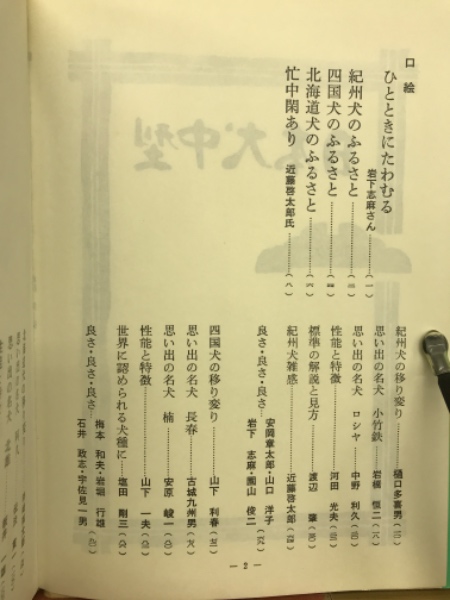 口絵
ひとときにたわむる
岩下志麻さん……(一)
紀州犬のふるさと……(二)
四国犬のふるさと……(四)
北海道犬のふるさと……(六)
忙中閑あり
近藤啓太郎氏……(八)
紀州犬の移り変り……樋口多喜男
思い出の名犬 小竹鉄……岩橋 恒二
思い出の名犬 ロシヤ……中野 利久
性能と特徴……河田 光夫
標準の解説と見方……渡辺 肇
紀州犬雑感……近藤啓太郎
良さ・良さ・良さ……安岡章太郎・山口 洋子
岩下 志麻・園山 俊二
四国犬の移り変り……山下 利春
思い出の名犬 長春……古城九州男
思い出の名犬 楠……安原 峻一
性能と特徴……山下 一夫
世界に認められる犬種に……塩田 剛三
良さ・良さ・良さ……梅本 和夫・岩堀 行雄
石井 政志・宇佐見一男
— 2 —